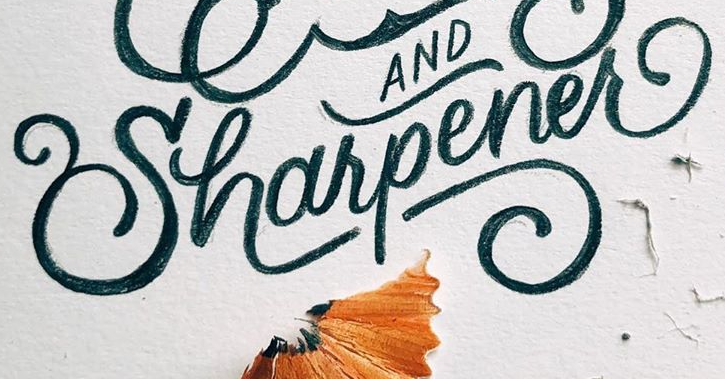 AND
Sharpener